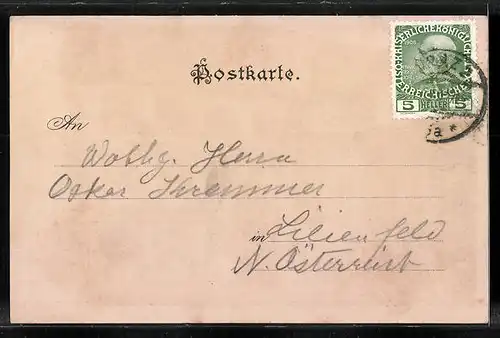 Postkarte.
KAISERLICHE KÖNIGLICHE
ÖSTERREICHISCHE
5 HELLER 5
An
Wohlg. Herrn
Oskar Kremmer
in Lilienfeld
N. Österreich